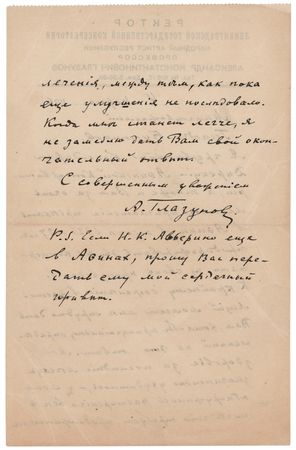 леченія, между тѣм, как пока
еще улучшенія не послѣдовало.
Когда мнѣ станет легче, я
не замедлю дать Вам свой окон-
чательный отвѣт.
С совершенным уваженіем
А. Глазунов
P.S. Если Н. К. Авьерино еще
в Афинах, прошу Вас пере-
дать ему мой сердечный
привѣт.